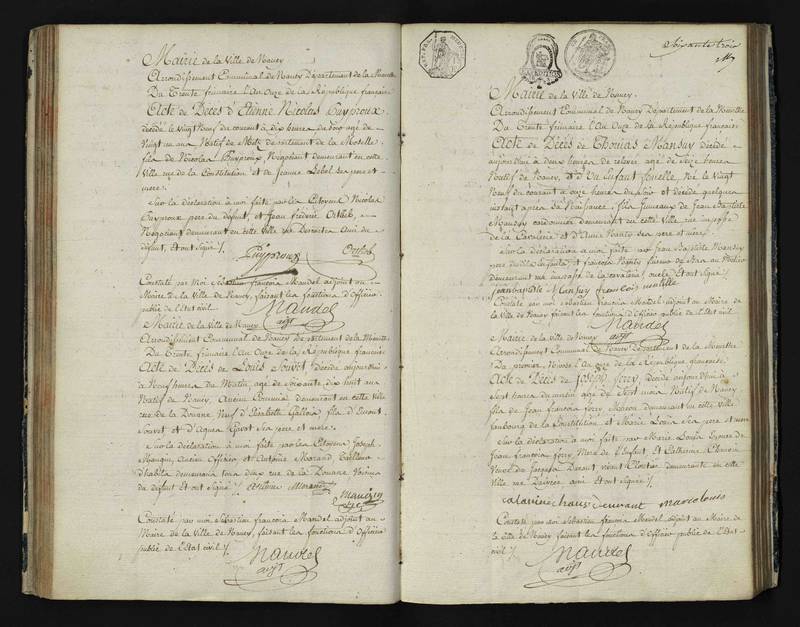 Mairie de la Ville de Nancy
Arrondissement Communal de Nancy Departement de la Meurthe
Du Trente frimaire l'An Onze de la République française
Acte de Décès d'Etienne Nicolas Puyproux
décédé le vingt Neuf du courant à dix heures du soir agé de
Vingt un ans Natif de Metz departement de la Moselle
fils de Nicolas Puyproux, Négociant demeurant en cette
Ville rue de la Constitution et de Jeanne Lebel ses pere et
mere.
Sur la déclaration à moi faite par les Citoyens Nicolas
Puyproux pere du défunt, et Jean fréderic
Négociant demeurant en cette Ville rue Descartes Ami du
défunt, Et ont Signé /.
Puyproux
Constaté par Moi Sébastien françois Mandel adjoint au
Maire de la Ville de Nancy, faisant les fonctions d'Officier
public de l'Etat civil
Mandel
adjt
Mairie de la Ville de Nancy
Arrondissement Communal de Nancy Departement de la Meurthe
Du Trente frimaire l'An Onze de la République francaise
Acte de Décès de Louis Souvet, décédé aujourd'hui
à Neuf heures du Matin, agé de soixante dix huit ans
Natif de Nancy, Ancien Commis demeurant en cette ville
rue de la Douane Veuf d'Elisabethe fils de
Souvet et d' ses pere et mere.
Sur la déclaration à moi faite par les Citoyens Joseph
Mougin, Ancien Officier et Antoine Morand Tailleur
d'habits demeurans tous deux rue de la Douane Voisins
du défunt Et ont Signé /. Antoine Morand
Mougin
Constaté par moi Sébastien francois Mandel adjoint au
Maire de la Ville de Nancy, faisant les fonctions d'Officier
public de l'Etat civil /.
Mandel
adjt
Soixante trois
Mairie de la Ville de Nancy.
Arrondissement Communal de Nancy Departement de la Meurthe
Du Trente frimaire l'An Onze de la République francaise.
Acte de Décès de Thomas Mansuy décédé
aujourd'hui à deux heures de relevée agé de seize heures
Natif de Nancy, &. d'Un Enfant femelle, Né le Vingt
Neuf du courant à onze heures du soir et décédé quelques
instans après sa Naissance, fils Jumeaux de Jean Baptiste
Mansuy cordonnier demeurant en cette Ville rue impasse
de la et d'Anne ses pere et mere.
Sur la déclaration à moi faite par Jean Baptiste Mansuy
pere desdits Enfants, et francois
demeurant rue impasse de la ont Signé /
jean baptiste Mansuy francois
Constaté par moi sébastien francois Mandel adjoint au Maire de
la Ville de Nancy faisant les fonctions d'Officier public de l'Etat civil
Mandel
adjt
Mairie de la Ville de Nancy
Arrondissement Communal de Nancy Departement de la Meurthe
Du premier Nivose l'An onze de la République francaise.
Acte de Décès de Joseph Jorry, décédé aujourd'hui à
Sept heures du matin agé de Sept mois Natif de Nancy
fils de Jean francois Jorry Macon demeurant en cette Ville
faubourg de la Constitution et Marie Louis ses pere et mere
Sur la déclaration à moi faite par Marie Louis Epouse de
Jean francois Jorry Mere de l'Enfant et Catherine
Veuve de Jacques Durant demeurante en cette
Ville rue Amie Et ont Signé /.
durant marie louis
Constaté par moi Sébastien francois Mandel adjoint au Maire de
la Ville de Nancy, faisant les fonctions d'Officier public de l'Etat
civil /.
Mandel
adjt